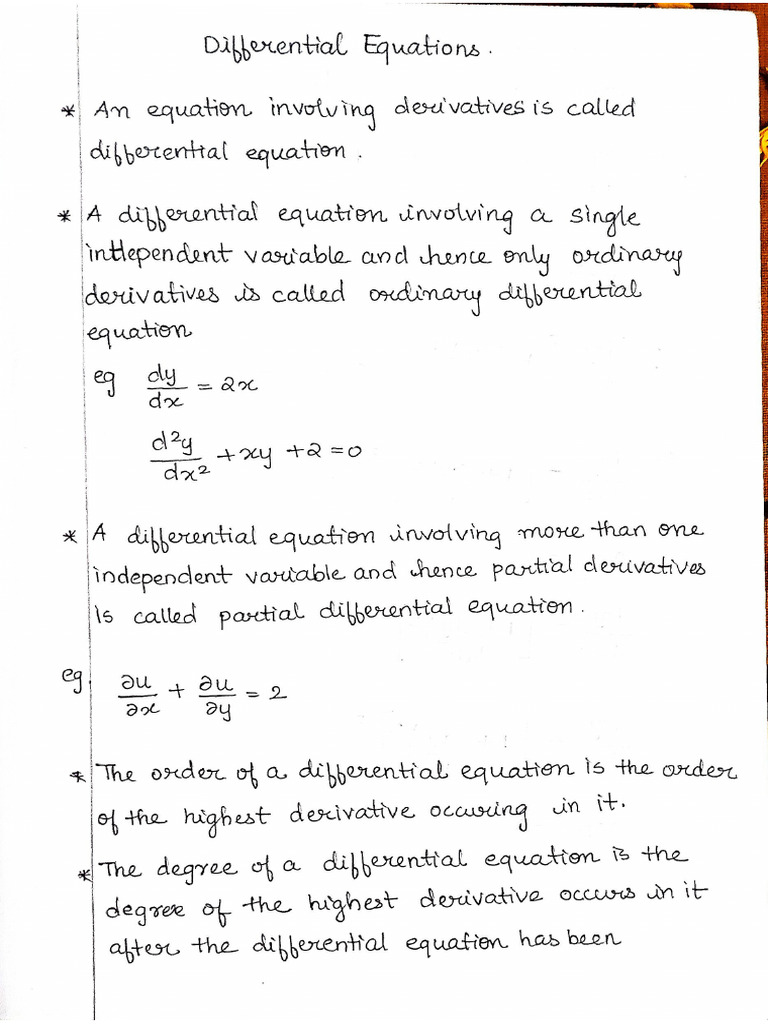 Differential Equations.
* An equation involving derivatives is called
differential equation.
* A differential equation involving a single
independent variable and hence only ordinary
derivatives is called ordinary differential
equation
eg dy/dx = 2x
d²y/dx² + xy + 2 = 0
* A differential equation involving more than one
independent variable and hence partial derivatives
is called partial differential equation.
eg. ∂u/∂x + ∂u/∂y = 2
* The order of a differential equation is the order
of the highest derivative occuring in it.
* The degree of a differential equation is the
degree of the highest derivative occurs in it
after the differential equation has been